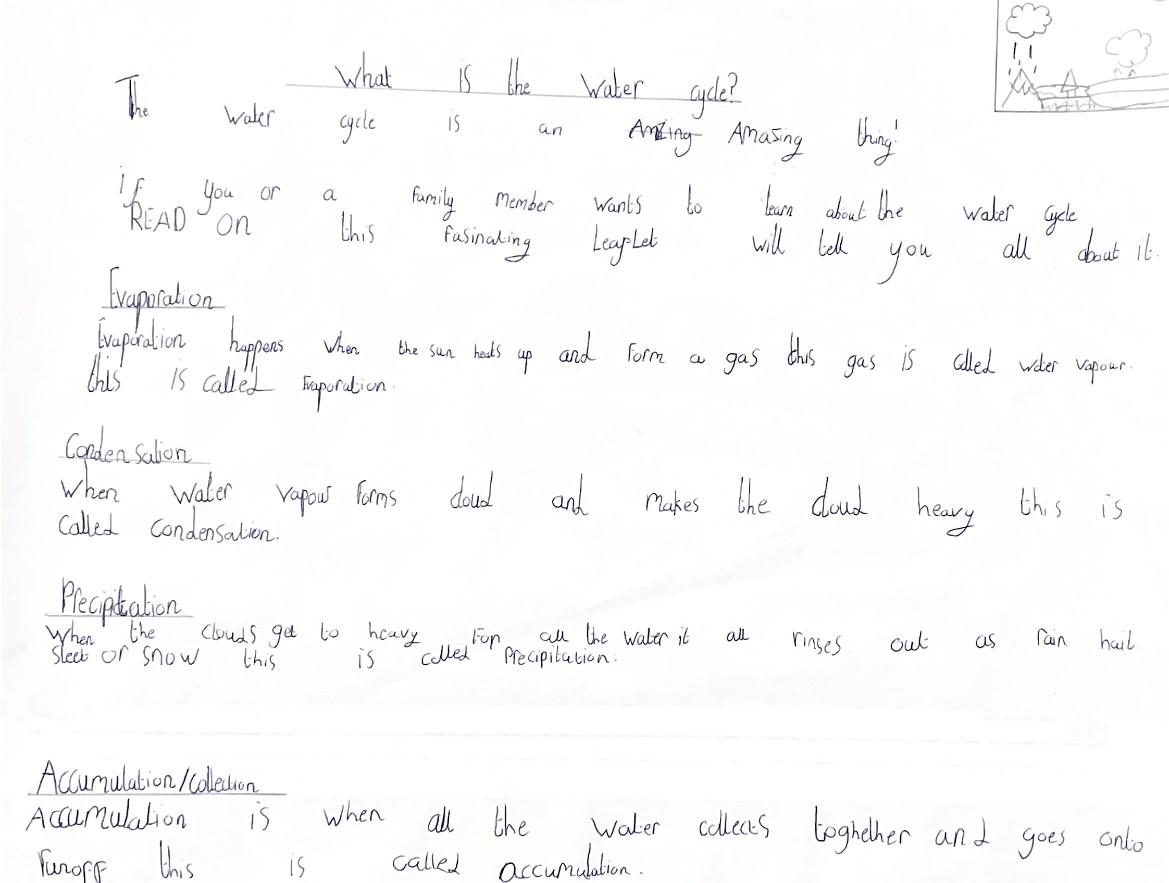 What is the Water cycle?
The water cycle is an Amzing Amazing thing!
if you or a family member wants to learn about the water cycle
READ ON this fasinating Leaflet will tell you all about it.
Evaporation
Evaporation happens when the sun heats up and form a gas this gas is called water vapour.
this is called Evaporation.
Condensation
When water vapour forms cloud and makes the cloud heavy this is
called condensation.
Precipitation
When the clouds get to heavy for all the water it all rinses out as rain hail
sleet or snow this is called Precipitation.
Accumulation/Collection
Accumulation is when all the water collects toghether and goes onto
runoff this is called accumulation.